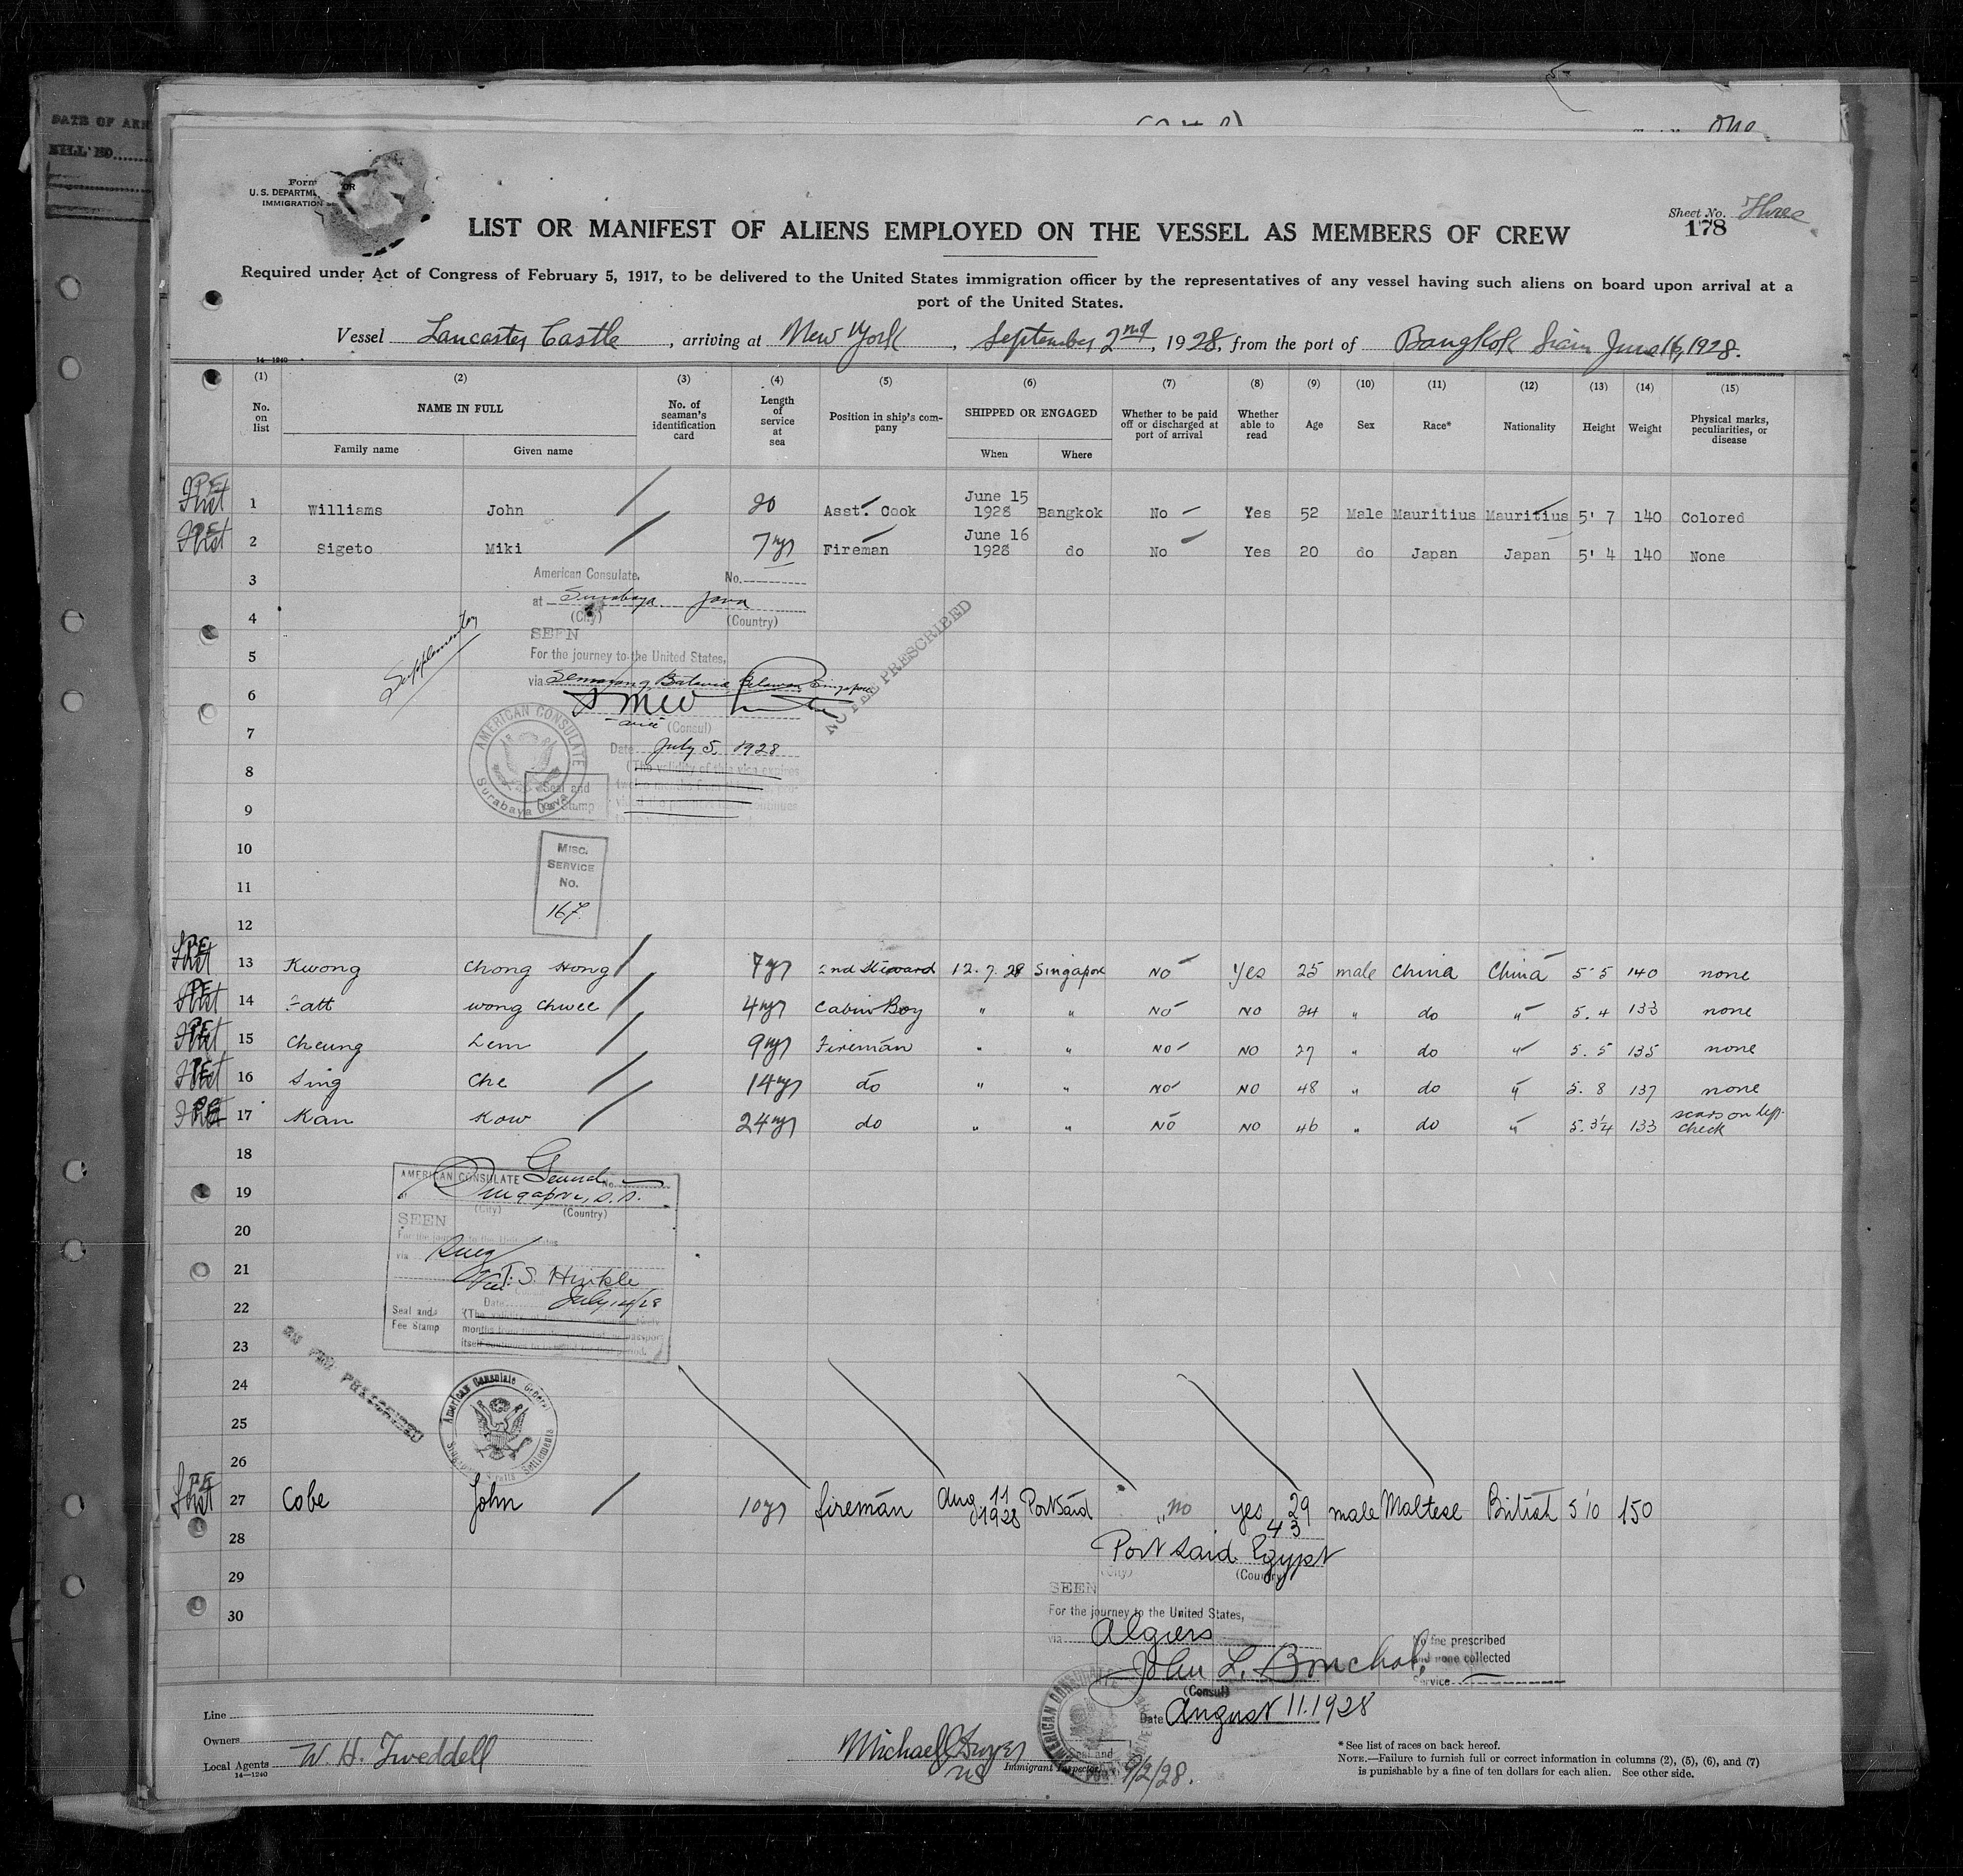 DATE OF ARR
BILL NO
One
Form
U. S. DEPARTM OR
IMMIGRATION
Sheet No. Three
178
LIST OR MANIFEST OF ALIENS EMPLOYED ON THE VESSEL AS MEMBERS OF CREW
Required under Act of Congress of February 5, 1917, to be delivered to the United States immigration officer by the representatives of any vessel having such aliens on board upon arrival at a
port of the United States.
Vessel Lancaster Castle, arriving at New York, September 2nd, 1928, from the port of Bangkok Siam June 16, 1928.
14—1240
(1) (2) (3) (4) (5) (6) (7) (8) (9) (10) (11) (12) (13) (14) (15)
No. on list NAME IN FULL Family name Given name No. of seaman's identification card Length of service at sea Position in ship's company SHIPPED OR ENGAGED When Where Whether to be paid off or discharged at port of arrival Whether able to read Age Sex Race* Nationality Height Weight Physical marks, peculiarities, or disease
1 Williams John 20 Asst. Cook June 15 1928 Bangkok No Yes 52 Male Mauritius Mauritius 5' 7 140 Colored
2 Sigeto Miki 7 yrs Fireman June 16 1928 do No Yes 20 do Japan Japan 5' 4 140 None
3 American Consulate, No.
4 at Surabaya Java
(City) (Country)
SEEN
5 For the journey to the United States,
Supplementary
NO FEE PRESCRIBED
6 via Semarang, Batavia, Belawan, Singapore
7 (Consul)
Date July 5, 1928
8 (The validity of this visa expires
AMERICAN CONSULATE
Surabaya Java
Seal and
Fee Stamp
9
10 MISC.
SERVICE
No.
11 167
12
13 Kwong Chong Hong 7 yrs 2nd Steward 12.7.28 Singapore No Yes 25 male China China 5·5 140 none
14 Fatt Wong Chwee 4 yrs Cabin Boy " " No No 24 " do " 5.4 133 none
15 Cheung Lem 9 yrs Fireman " " No No 27 " do " 5.5 135 none
16 Sing Che 14 yrs do " " No No 48 " do " 5.8 137 none
17 Kan Kow 24 yrs do " " No No 46 " do " 5.3¼ 133 scars on left cheek
18
19 AMERICAN CONSULATE General No.
at Singapore, S.S.
(City) (Country)
20 SEEN
For the journey to the United States
21 via Suez
Vice T. S. Hinkle
22 Date July 14/28
Seal and
Fee Stamp
(The validity
23
NO FEE PRESCRIBED
24 American Consulate General
25 Singapore Straits Settlements
26
27 Cobe John 10 yrs fireman Aug. 11 1928 Port Said no yes 29 male Maltese British 5'10 150
43
28 Port Said Egypt
(City) (Country)
29 SEEN
30 For the journey to the United States,
via Algiers
No fee prescribed
and none collected
Service
John L.
(Consul)
Date August 11. 1928
AMERICAN CONSULATE
Line
Owners
Local Agents W. H. Tweddell
14—1240
Michael
Immigrant Inspector.
9/2/28.
* See list of races on back hereof.
NOTE.—Failure to furnish full or correct information in columns (2), (5), (6), and (7)
is punishable by a fine of ten dollars for each alien. See other side.